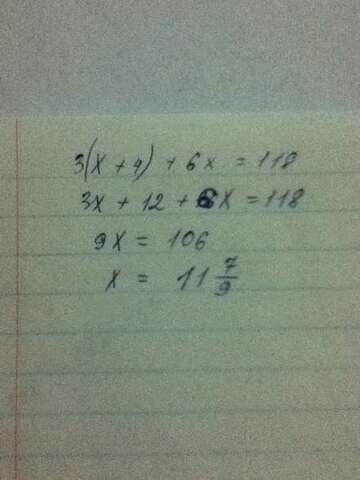 3(x + 4) + 6x = 118
3x + 12 + 6x = 118
9x = 106
x = 11 7/9